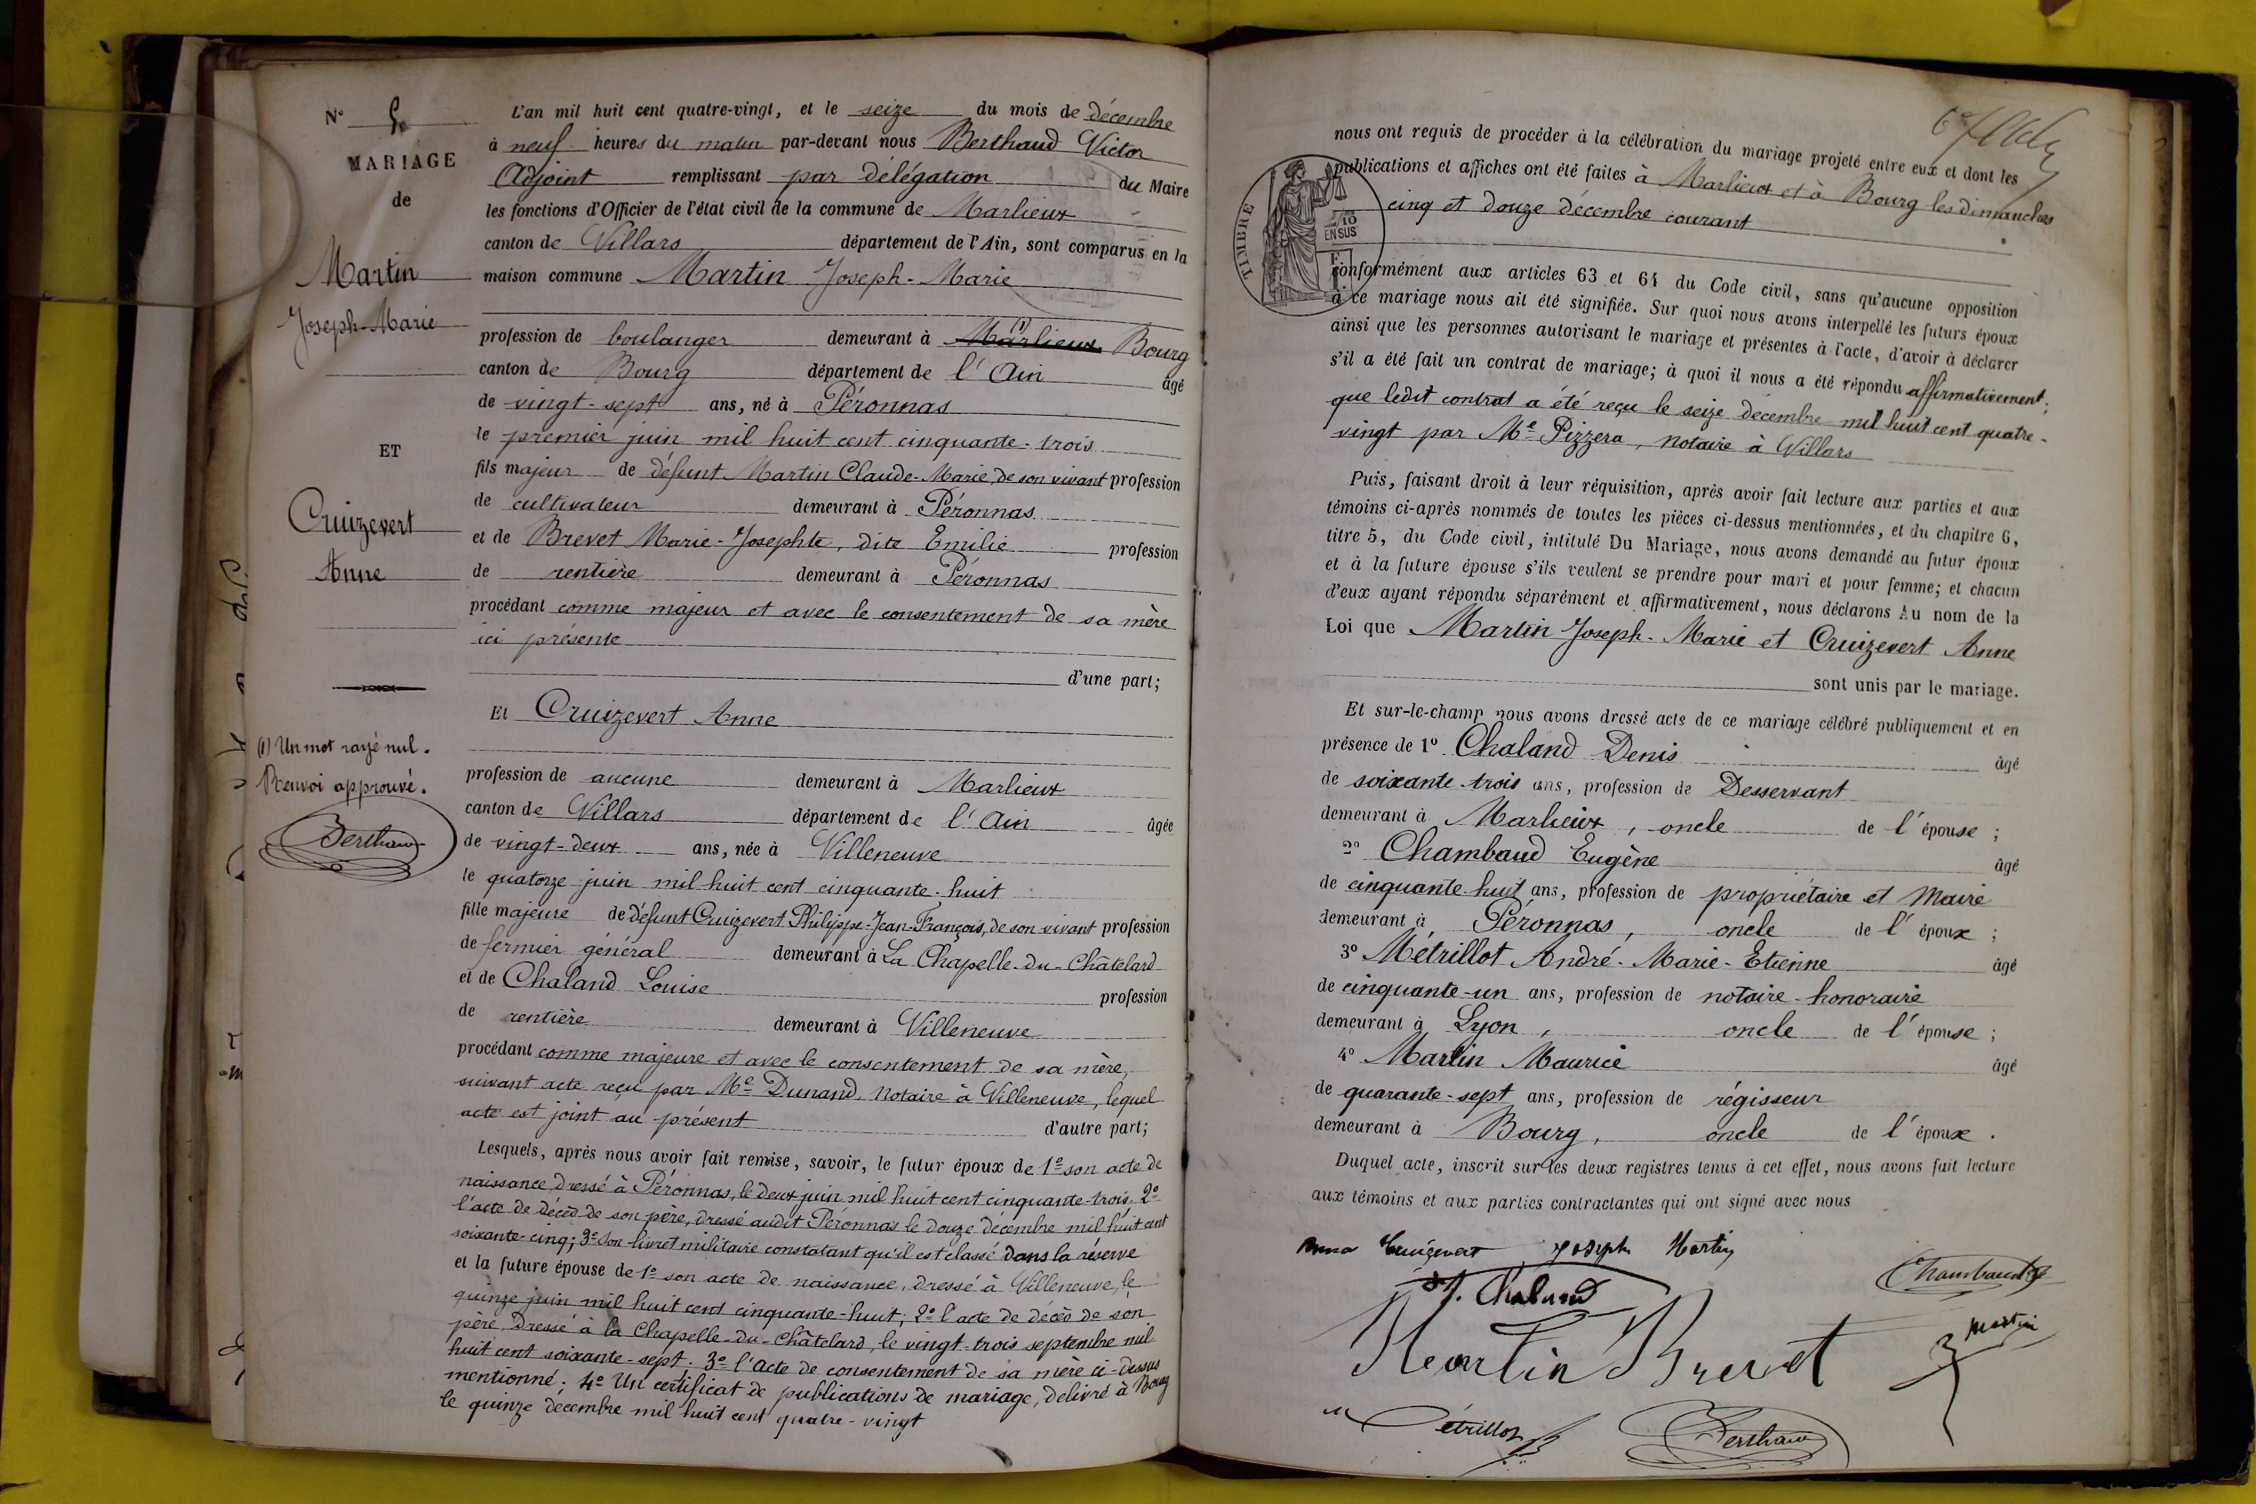 N° 5.
MARIAGE
de
Martin
Joseph-Marie
ET
Cruizevert
Anne
(1) Un mot rayé nul.
Renvoi approuvé.
Berthaud
L'an mil huit cent quatre-vingt, et le seize du mois de décembre
à neuf heures du matin par-devant nous Berthaud Victor
Adjoint remplissant par délégation du Maire
les fonctions d'Officier de l'état civil de la commune de Marlieux
canton de Villars département de l'Ain, sont comparus en la
maison commune Martin Joseph-Marie
profession de boulanger demeurant à Marlieux (1) Bourg
canton de Bourg département de l'Ain âgé
de vingt-sept ans, né à Péronnas
le premier juin mil huit cent cinquante-trois
fils majeur de défunt Martin Claude-Marie, de son vivant profession
de cultivateur demeurant à Péronnas
et de Brevet Marie-Josephte, dite Emilie profession
de rentière demeurant à Péronnas
procédant comme majeur et avec le consentement de sa mère
ici présente
d'une part;
Et Cruizevert Anne
profession de aucune demeurant à Marlieux
canton de Villars département de l'Ain âgée
de vingt-deux ans, née à Villeneuve
le quatorze juin mil huit cent cinquante-huit
fille majeure de défunt Cruizevert Philippe-Jean-François, de son vivant profession
de fermier général demeurant à La Chapelle-du-Châtelard
et de Chaland Louise profession
de rentière demeurant à Villeneuve
procédant comme majeure et avec le consentement de sa mère,
suivant acte reçu par Me Dunand, Notaire à Villeneuve, lequel
acte est joint au présent d'autre part;
Lesquels, après nous avoir fait remise, savoir, le futur époux de 1° son acte de
naissance dressé à Péronnas, le deux juin mil huit cent cinquante-trois, 2°
l'acte de décès de son père, dressé audit Péronnas le douze décembre mil huit cent
soixante-cinq; 3° son livret militaire constatant qu'il est classé dans la réserve
et la future épouse de 1° son acte de naissance, dressé à Villeneuve, le
quinze juin mil huit cent cinquante-huit; 2° l'acte de décès de son
père, dressé à la Chapelle-du-Châtelard, le vingt-trois septembre mil
huit cent soixante-sept. 3° l'acte de consentement de sa mère ci-dessus
mentionné; 4° Un certificat de publications de mariage, délivré à Bourg
le quinze décembre mil huit cent quatre-vingt
nous ont requis de procéder à la célébration du mariage projeté entre eux et dont les
publications et affiches ont été faites à Marlieux et à Bourg les dimanches
cinq et douze décembre courant
TIMBRE
2/10
EN SUS
conformément aux articles 63 et 64 du Code civil, sans qu'aucune opposition
à ce mariage nous ait été signifiée. Sur quoi nous avons interpellé les futurs époux
ainsi que les personnes autorisant le mariage et présentes à l'acte, d'avoir à déclarer
s'il a été fait un contrat de mariage; à quoi il nous a été répondu affirmativement;
que ledit contrat a été reçu le seize décembre mil huit cent quatre-
vingt par Me Pizzera, notaire à Villars
Puis, faisant droit à leur réquisition, après avoir fait lecture aux parties et aux
témoins ci-après nommés de toutes les pièces ci-dessus mentionnées, et du chapitre 6,
titre 5, du Code civil, intitulé Du Mariage, nous avons demandé au futur époux
et à la future épouse s'ils veulent se prendre pour mari et pour femme; et chacun
d'eux ayant répondu séparément et affirmativement, nous déclarons Au nom de la
Loi que Martin Joseph-Marie et Cruizevert Anne
sont unis par le mariage.
Et sur-le-champ nous avons dressé acte de ce mariage célébré publiquement et en
présence de 1° Chaland Denis âgé
de soixante-trois ans, profession de Desservant
demeurant à Marlieux, oncle de l'épouse;
2° Chambaud Eugène âgé
de cinquante-huit ans, profession de propriétaire et Maire
demeurant à Péronnas, oncle de l'époux;
3° Métrillot André-Marie-Etienne âgé
de cinquante-un ans, profession de notaire-honoraire
demeurant à Lyon, oncle de l'épouse;
4° Martin Maurice âgé
de quarante-sept ans, profession de régisseur
demeurant à Bourg, oncle de l'époux.
Duquel acte, inscrit sur les deux registres tenus à cet effet, nous avons fait lecture
aux témoins et aux parties contractantes qui ont signé avec nous
Anna Cruizevert Joseph Martin
Chambaud
D. Chaland
Martin Brevet
Martin
Métrillot
Berthaud